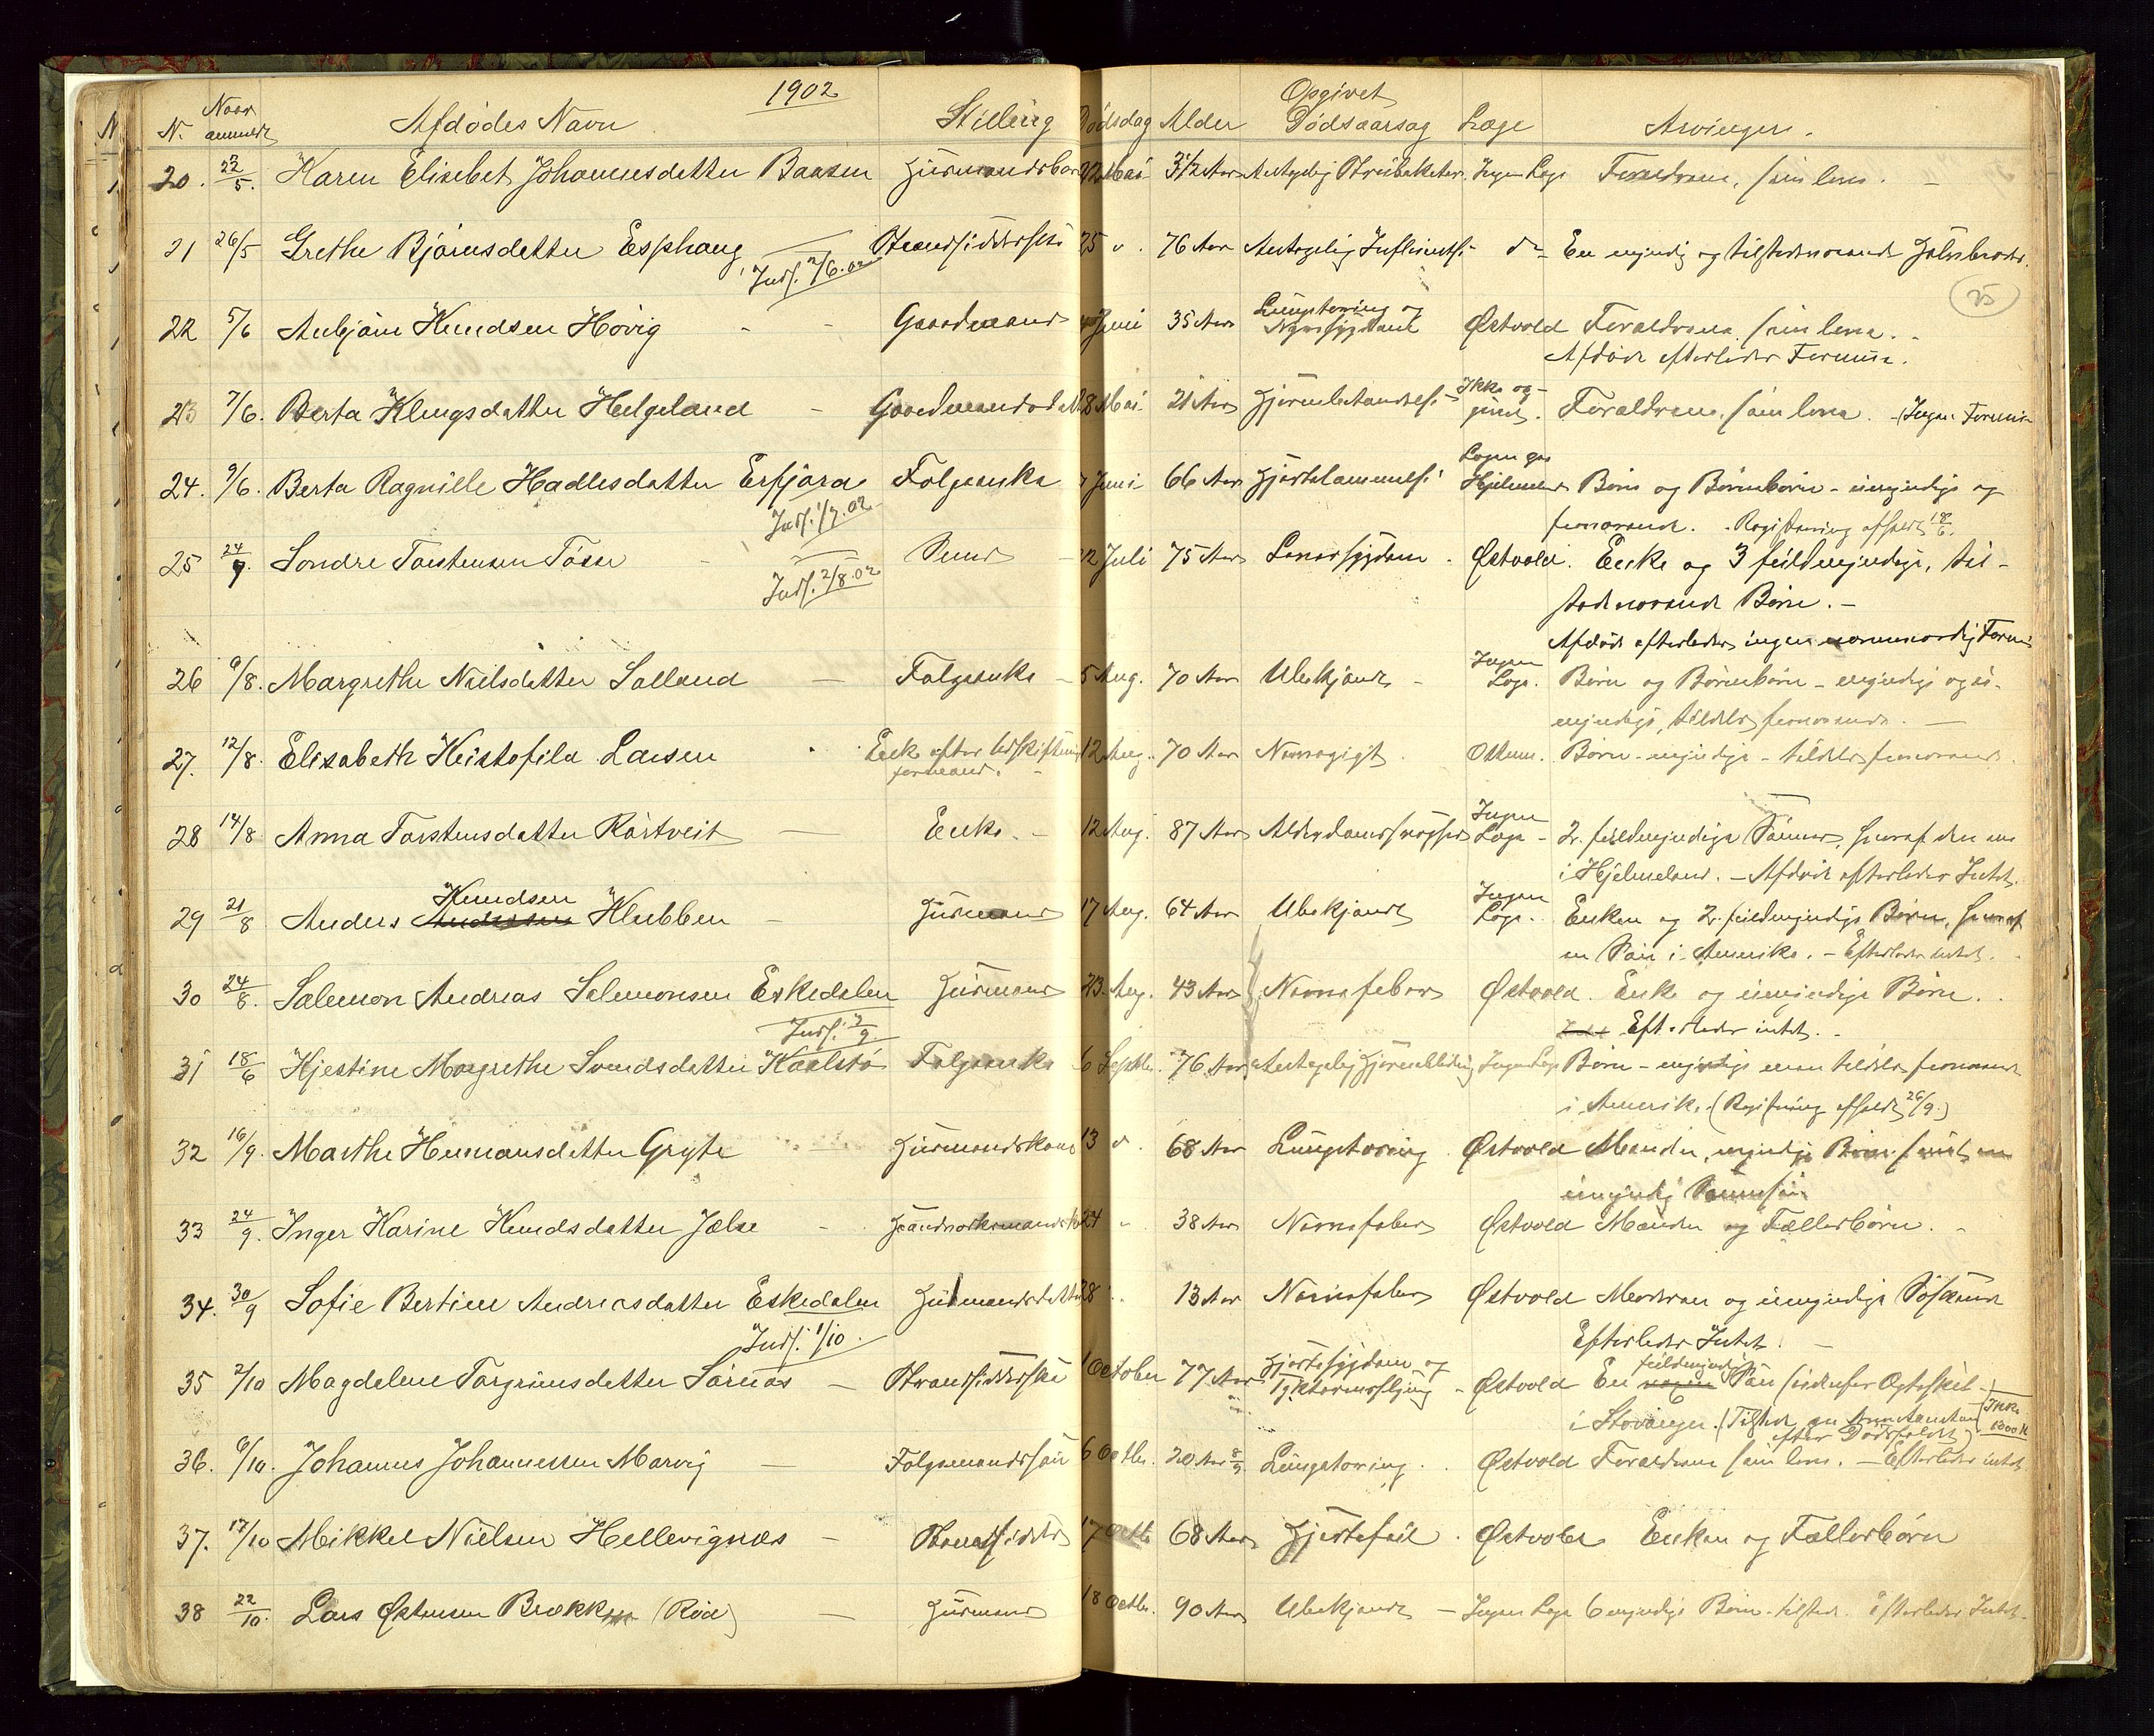 1902
N. Naar anmeldt Afdödes Navn Stilling Dödsdag Alder Opgivet Dödsaarsag Læge Arvinger.
20. 22/5. Karen Elisebet Johannesdatter Baasen Husmandsbarn 22 Mai 3 1/2 Aar Antagelig Strubekatar. Ingen Læge Forældrene, som leve. –
21 26/5 Grethe Bjørnsdatter Esphaug Strandsidderske 25 " 76 Aar Antagelig Influents. do En myndig og tilstedeværende Halvbroder.
Inds. 2/6.02
25
22 5/6 Anbjörn Knudsen Hövig – – Gaardmand 4 Juni 35 Aar Lungetæring og Nyresygdom Østvold Forældrene som leve.
Afdöde efterlader Formue.
23 7/6. Berta Klungsdatter Helgeland – Gaardmandsdatter 28 Mai 21 Aar Hjernebetændelse Ikke opgivet. Forældrene, som leve. – Ingen Formue
24. 9/6. Berta Ragnille Hadlesdatter Erfjord Folgeenke 7 Juni 66 Aar Hjertelammelse Hjelmeland Börn og Börnebörn – umyndige og
fraværende. – Registrering afholdt 18/6.
Inds. 1/7.02
25 24/7. Sondre Torstensen Tösse – 22 Juli 75 Aar Leversygdom. Østvold. Enke og 3 fuldmyndige, til-
stedeværende Börn. –
Inds. 2/8.02
Afdöde efterlader ingen nævneværdig Formue
26 6/8. Margrethe Nielsdatter Solland – Folgeenke – 5 Aug. 70 Aar Ubekjendt – Ingen Læge. Börn og Börnebörn – myndige og u-
myndige, tildels fraværende. –
27. 12/8. Elisabeth Kristofila Larsen Enke efter Udskiftningsformand. – 12 Aug. 70 Aar Nervegigt. Börn – myndige – tildels fraværende.
28 14/8 Anna Torstensdatter Rörtveit – Enke. – 12 Aug. 87 Aar Alderdomssvaghed Ingen Læge – 2 fuldmyndige Sönner, hvoraf den ene
i Hjelmeland. – Afdöde efterlader Intet.
29 21/8 Anders Andersen Knudsen Klubben – Husmand 17 Aug. 64 Aar Ubekjendt Ingen Læge. Enken og 2 fuldmyndige Börn, hvoraf
en Sön i Amerika. – Efterlader intet.
30 24/8. Salemon Andreas Salemonsen Eskedalen Husmand 23 Aug. 43 Aar Nervefeber Østvold. Enke og umyndige Börn.
Inds. 3/9 Efterlader intet. –
31 18/6 Kjestine Margrethe Svendsdatter Kaalstö Folgeenke 6 Septbr. 76 Aar Antagelig Hjerneblödning Ingen Læge Börn – myndige men tildels fraværende
i Amerika. (Registrering afholdt 26/9.)
32 16/9. Marthe Hermansdatter Gryte Husmandskone 13 " 68 Aar Lungetæring. Østvold Manden, myndige Börn samt en
umyndig Sönnesön
33 24/9. Inger Karine Knudsdatter Jælse – Haandværksmandskone 24 " 38 Aar Nervefeber Østvold Manden og Fællesbörn. –
34. 30/9 Sofie Bertine Andreasdatter Eskedalen Husmandsdatter 28 " 13 Aar Nervefeber Østvold Moderen og umyndige Södskende
Inds. 1/10. Efterlader Intet. –
35 2/10 Magdalene Torgrimsdatter Sörnæs – Strandsidderske 1 October 77 Aar Hjertesygdom og Østvold En fuldmyndig Sön udenfor Ægteskab –
i Stavanger. (Tilstede
efter Dödsfaldet) Ikke 1000 K
36. 6/10. Johannes Johannessen Marvig – Folgemandssön 6 Octbr. 20 Aar 8/9 Lungetæring. Østvold Forældrene som leve. – Efterlader intet
37. 17/10 Mikkel Nielsen Hellevignæs – Strandsidder 17 Octb. 68 Aar Hjertefeil. Østvold Enken og Fællesbörn
38 22/10. Lars Østensen Brækk (Röd) – Husmand 18 Octbr. 90 Aar Ubekjendt – Ingen Læge 6 myndige Börn tilstede. Efterlader Intet.